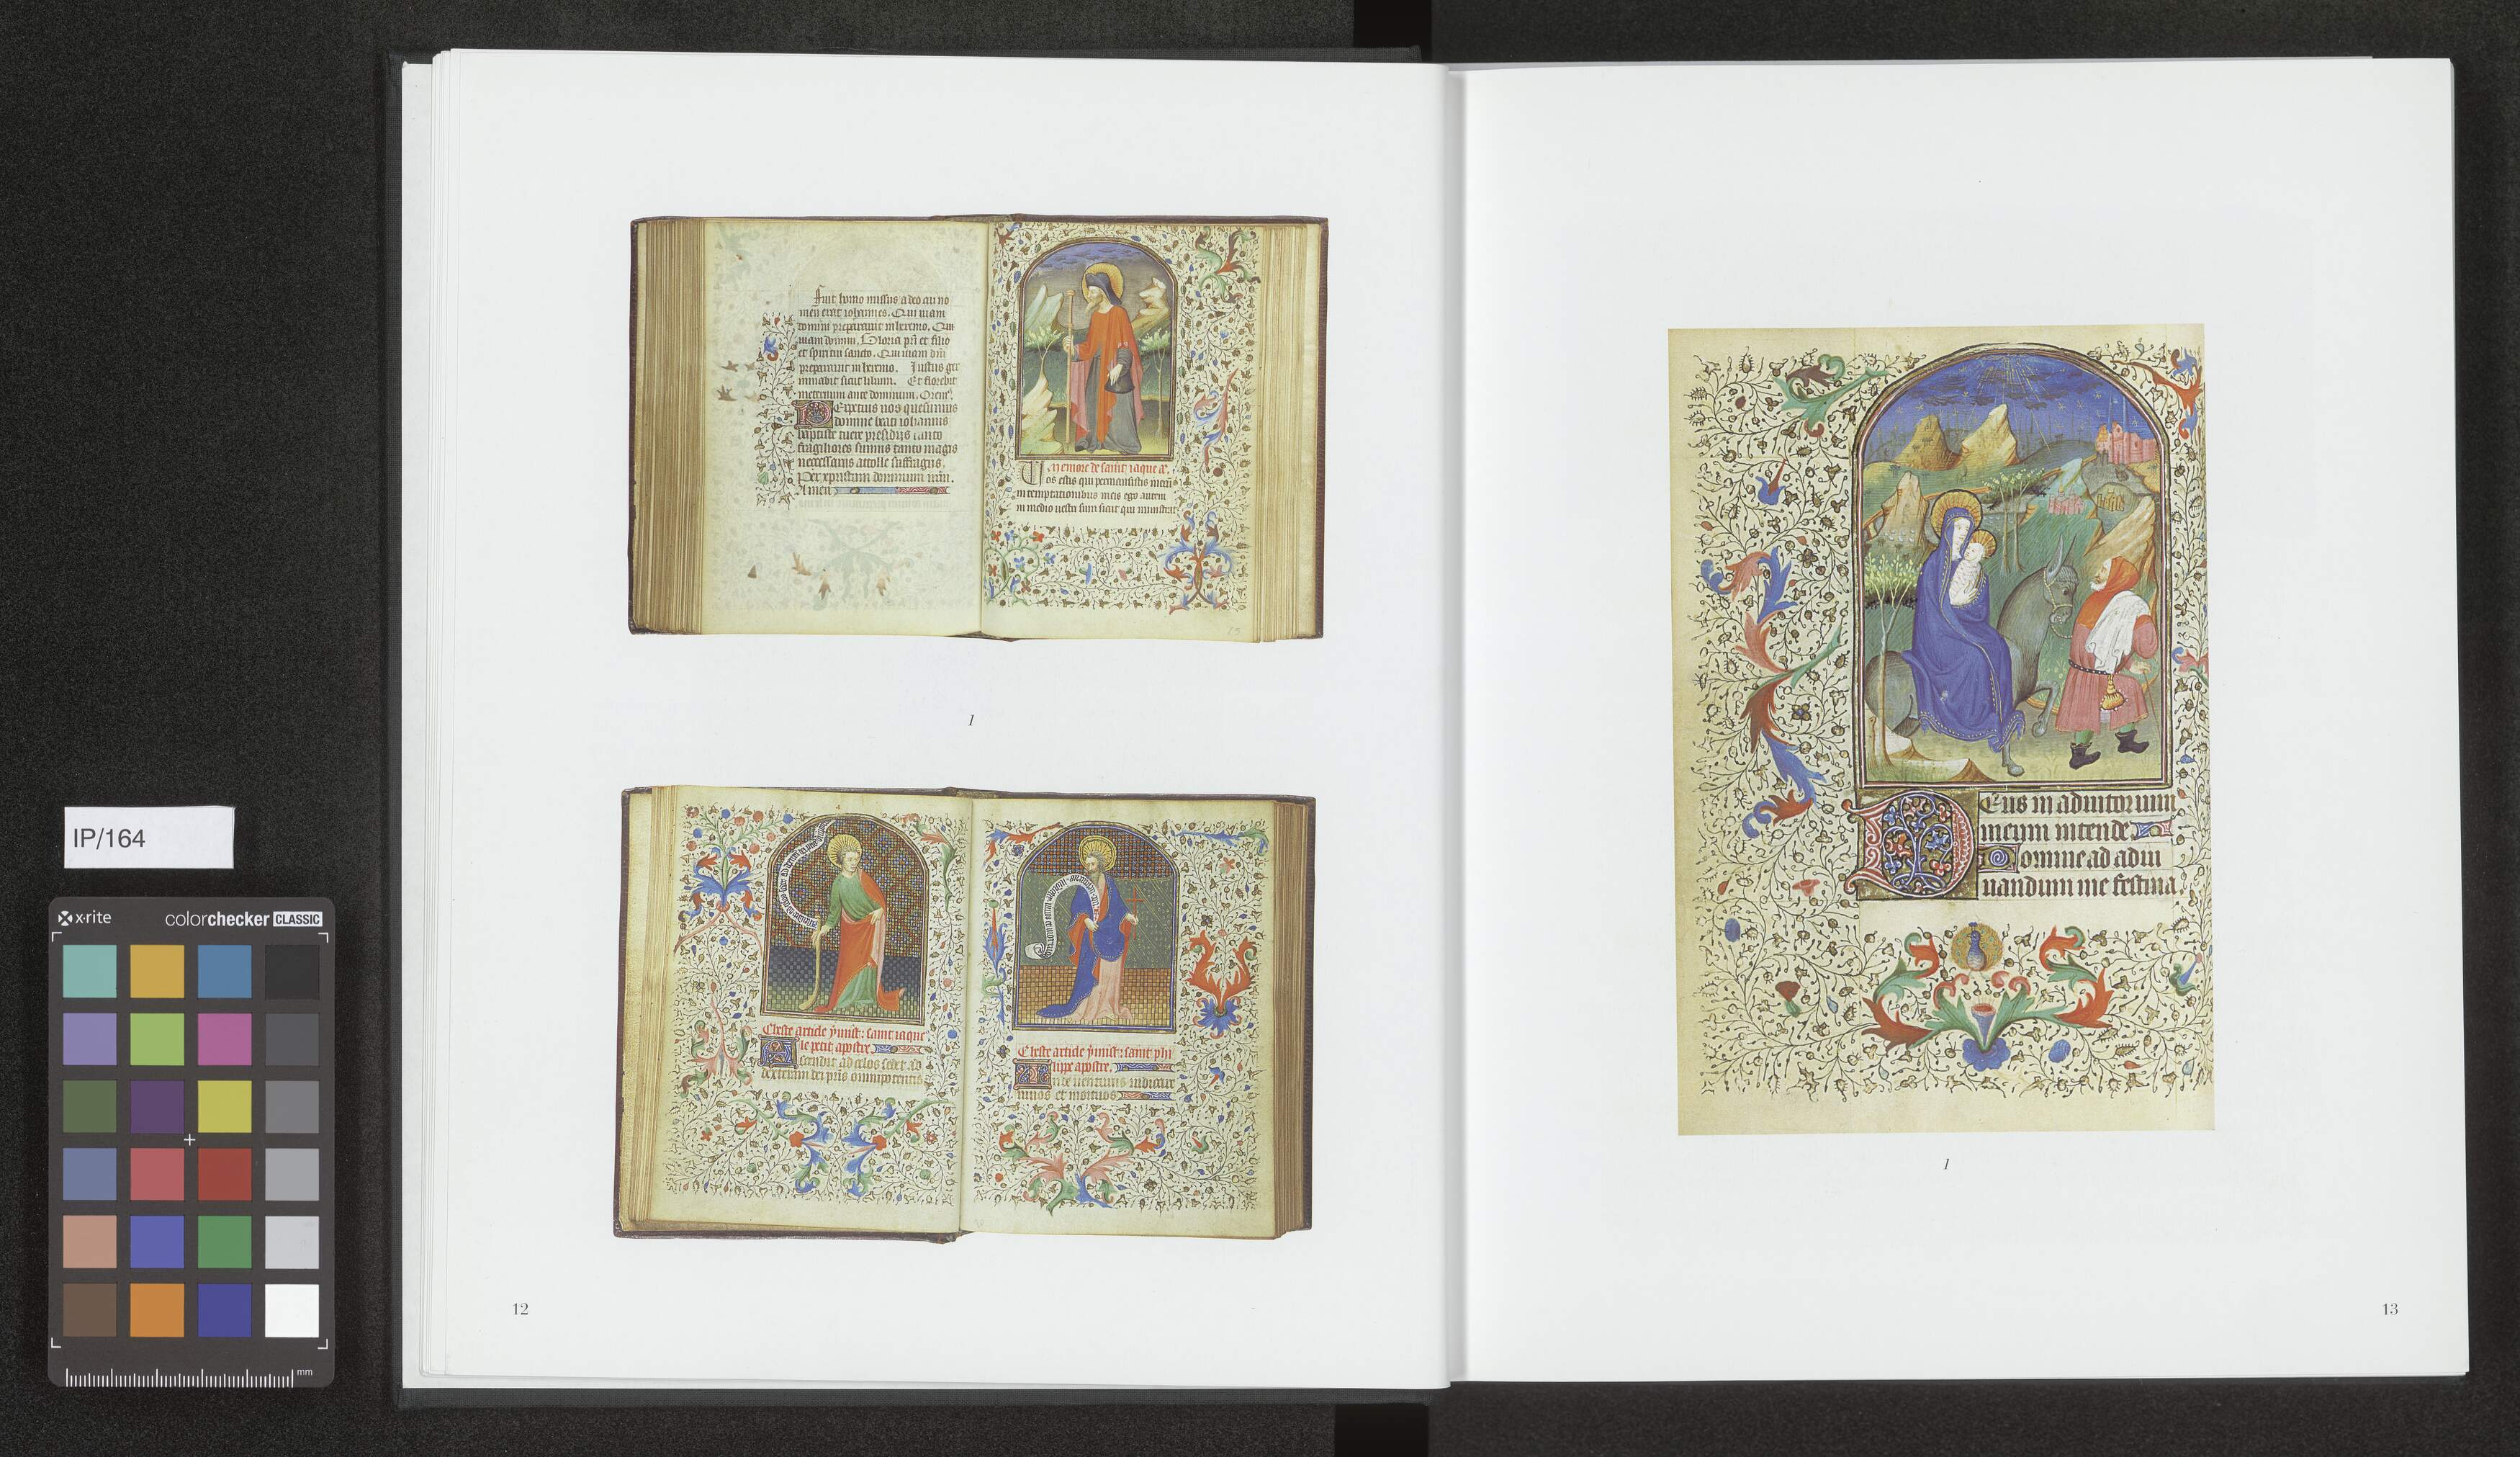 IP/164
x-rite colorchecker CLASSIC
mm
Fuit homo missus a deo cui no
men erat iohannes. Qui uiam
domini preparauit in heremo. Qui
uiam domini. Gloria pri et filio
et spiritui sancto. Qui uiam dni
preparauit in heremo. Iustus ger
minabit sicut lilium. Et florebit
ineternum ante dominum. Orem9.
Erpetuis nos quesumus
domine beati iohannis
baptiste tuere presidijs
fragiliores sumus tanto magis
necessarijs attolle suffragijs.
Per xpristum dominum nrm.
Amen
memore de saint iaque
Vos estis qui permansistis mecu
in temptationibus meis ego autem
in medio uestri sum sicut qui ministrat
1
Cheste article y mist: saint iaque
le petit apostre.
Ascendit ad celos sedet ad
dexteram dei pris omnipotentis
Cheste article y mist: saint phi
lippe apostre.
Inde uenturus iudicare
uiuos et mortuos
12
Deus in adiutorium
meum intende
Domine ad adiu
uandum me festina.
1
13